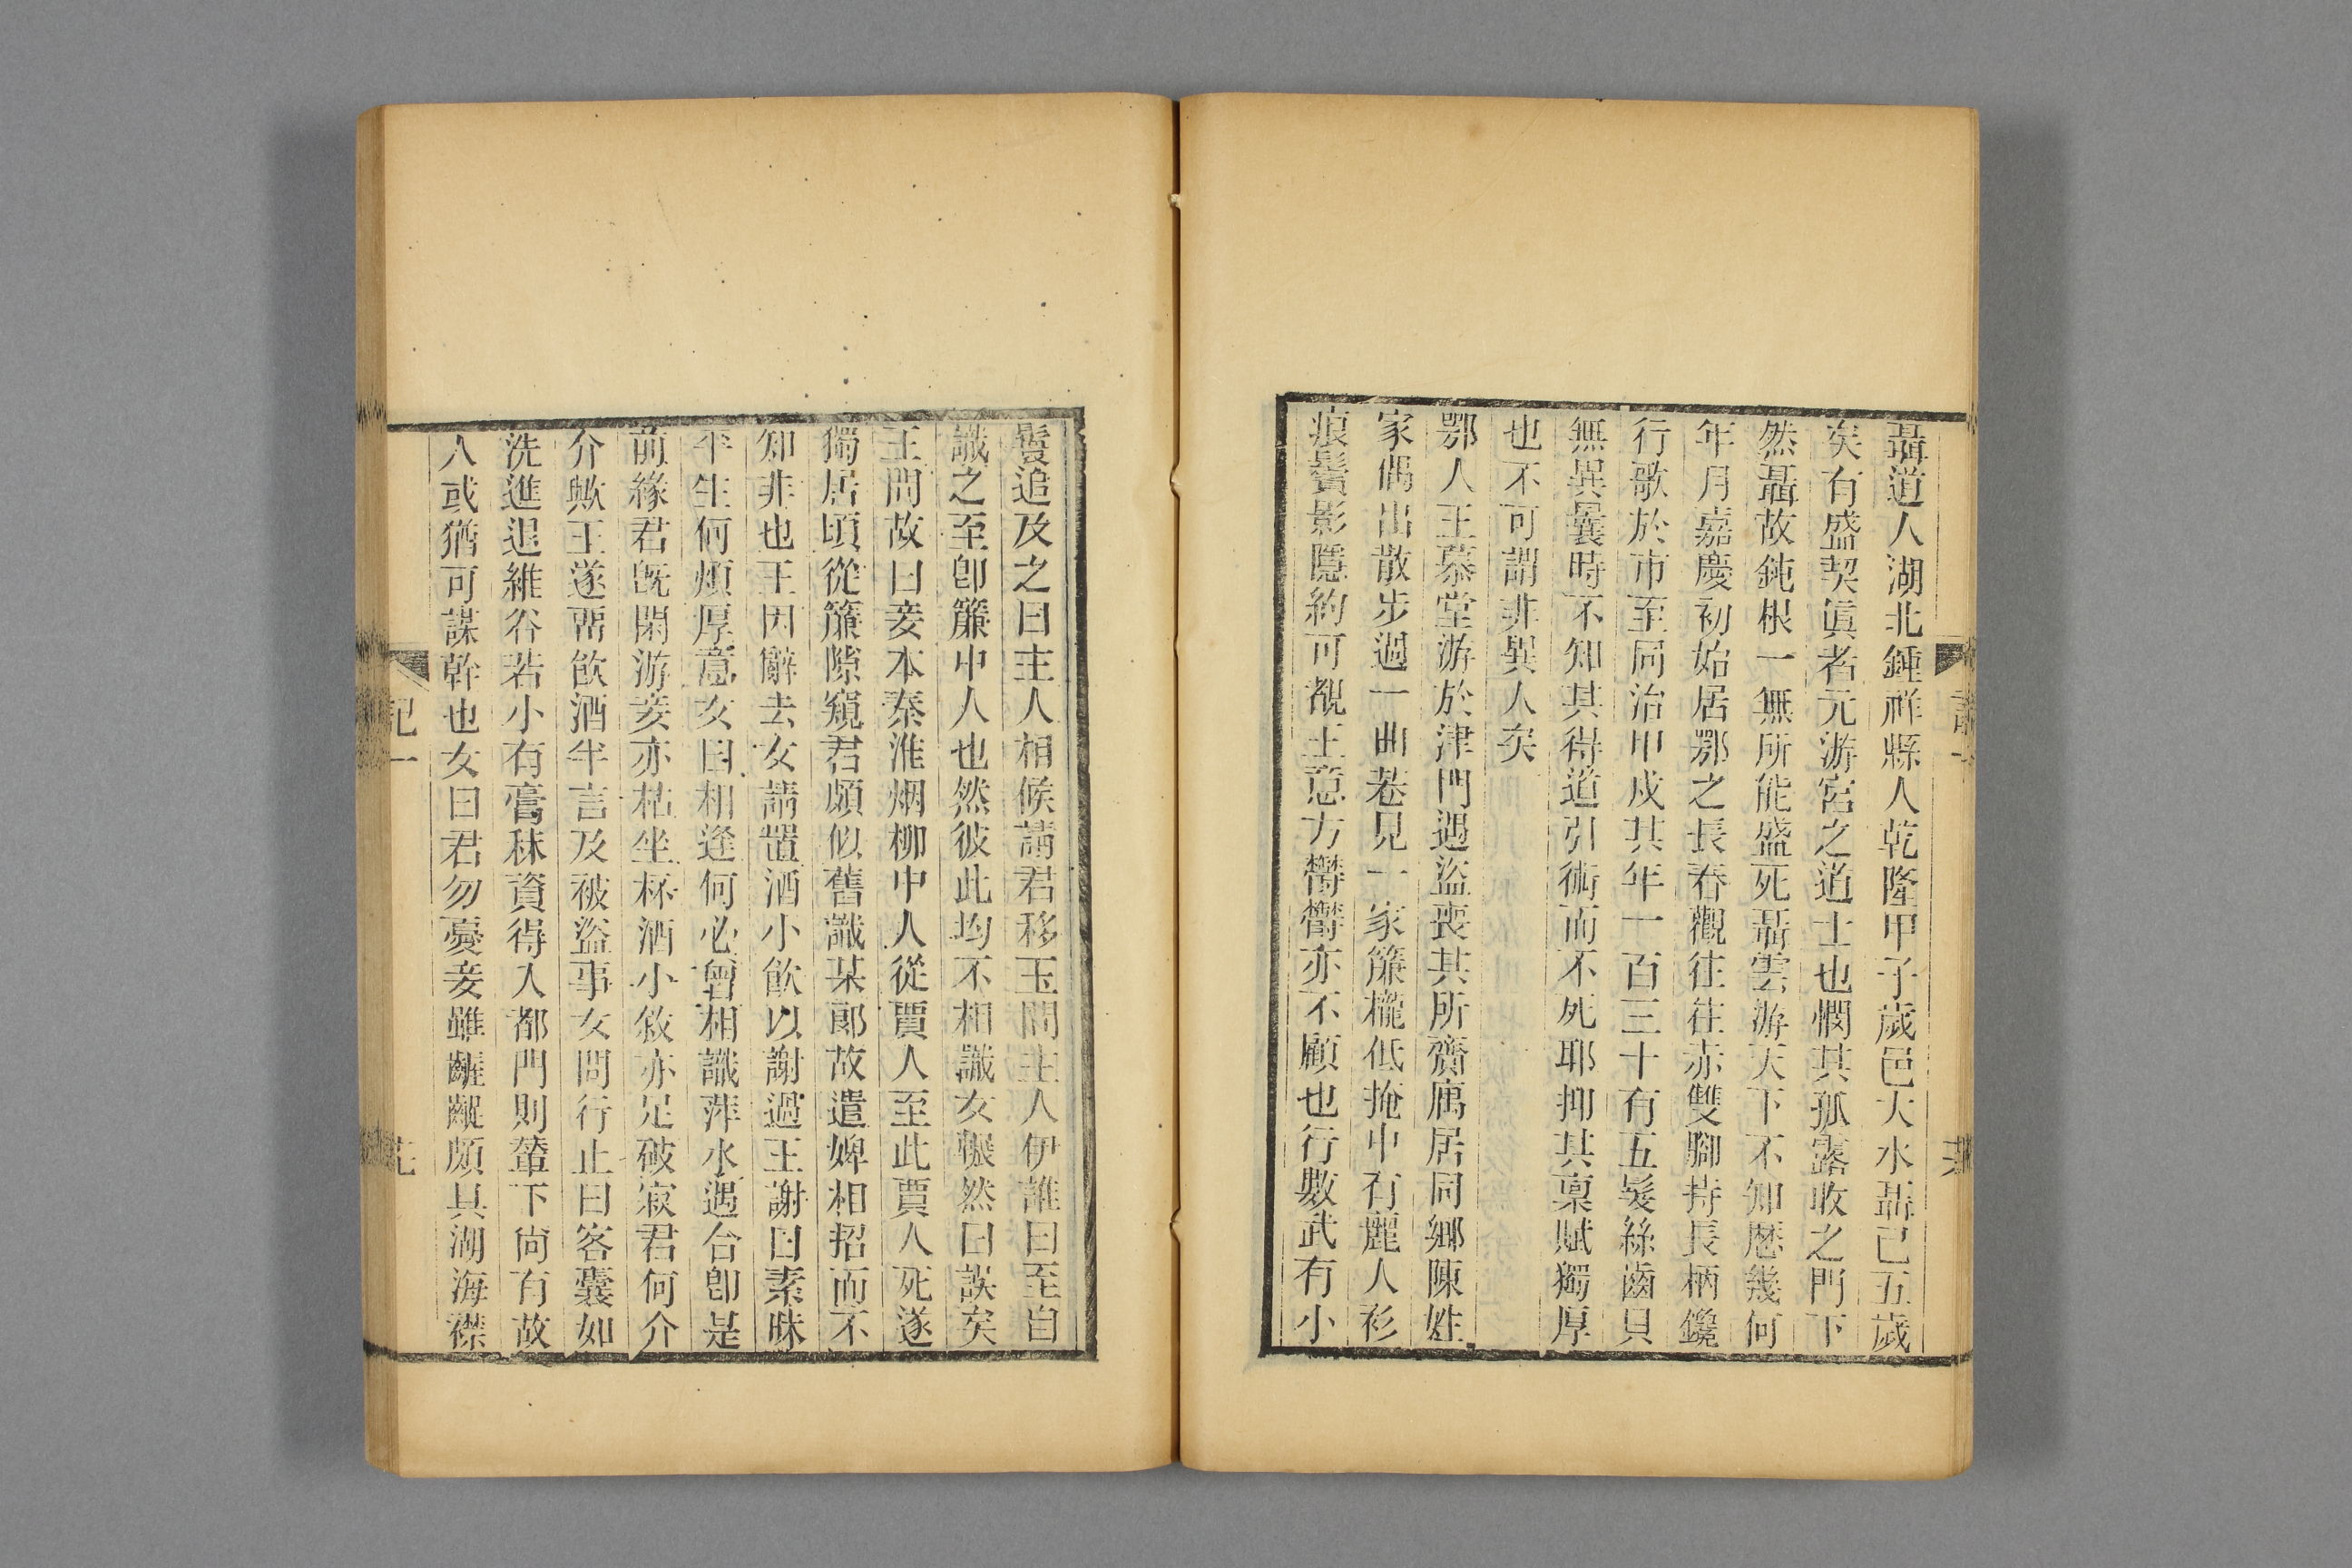 聶道人湖北鍾祥縣人乾隆甲子歲邑大水聶已五歲
矣有盛契眞者元游宮之道士也憫其孤露收之門下
然聶故鈍根一無所能盛死聶雲游天下不知歷幾何
年月嘉慶初始居鄂之長春觀往往赤雙腳持長柄鑱
行歌於市至同治甲戍其年一百三十有五髮絲齒貝
無異曩時不知其得道引術而不死耶抑其稟賦獨厚
也不可謂非異人矣
鄂人王慕堂游於津門遇盜喪其所齎寓居同鄉陳姓
家偶出散步過一曲巷見一家簾櫳低掩中有麗人衫
痕鬢影隱約可覩王意方鬱鬱亦不顧也行數武有小
鬟追及之曰主人相候請君移玉問主人伊誰曰至自
識之至卽簾中人也然彼此均不相識女囅然曰誤矣
王問故曰妾本秦淮烟柳中人從賈人至此賈人死遂
獨居頃從簾隙窺君頗似舊識某郎故遣婢相招而不
知非也王因辭去女請置酒小飲以謝過王謝曰素昧
平生何煩厚意女曰相逢何必曾相識萍水遇合卽是
前緣君旣閑游妾亦枯坐杯酒小敘亦足破寂君何介
介歟王遂留飲酒半言及被盜事女問行止曰客囊如
洗進退維谷若小有膏秣資得入都門則輦下尙有故
人或猶可謀幹也女曰君勿憂妾雖齷齪頗具湖海襟
記一